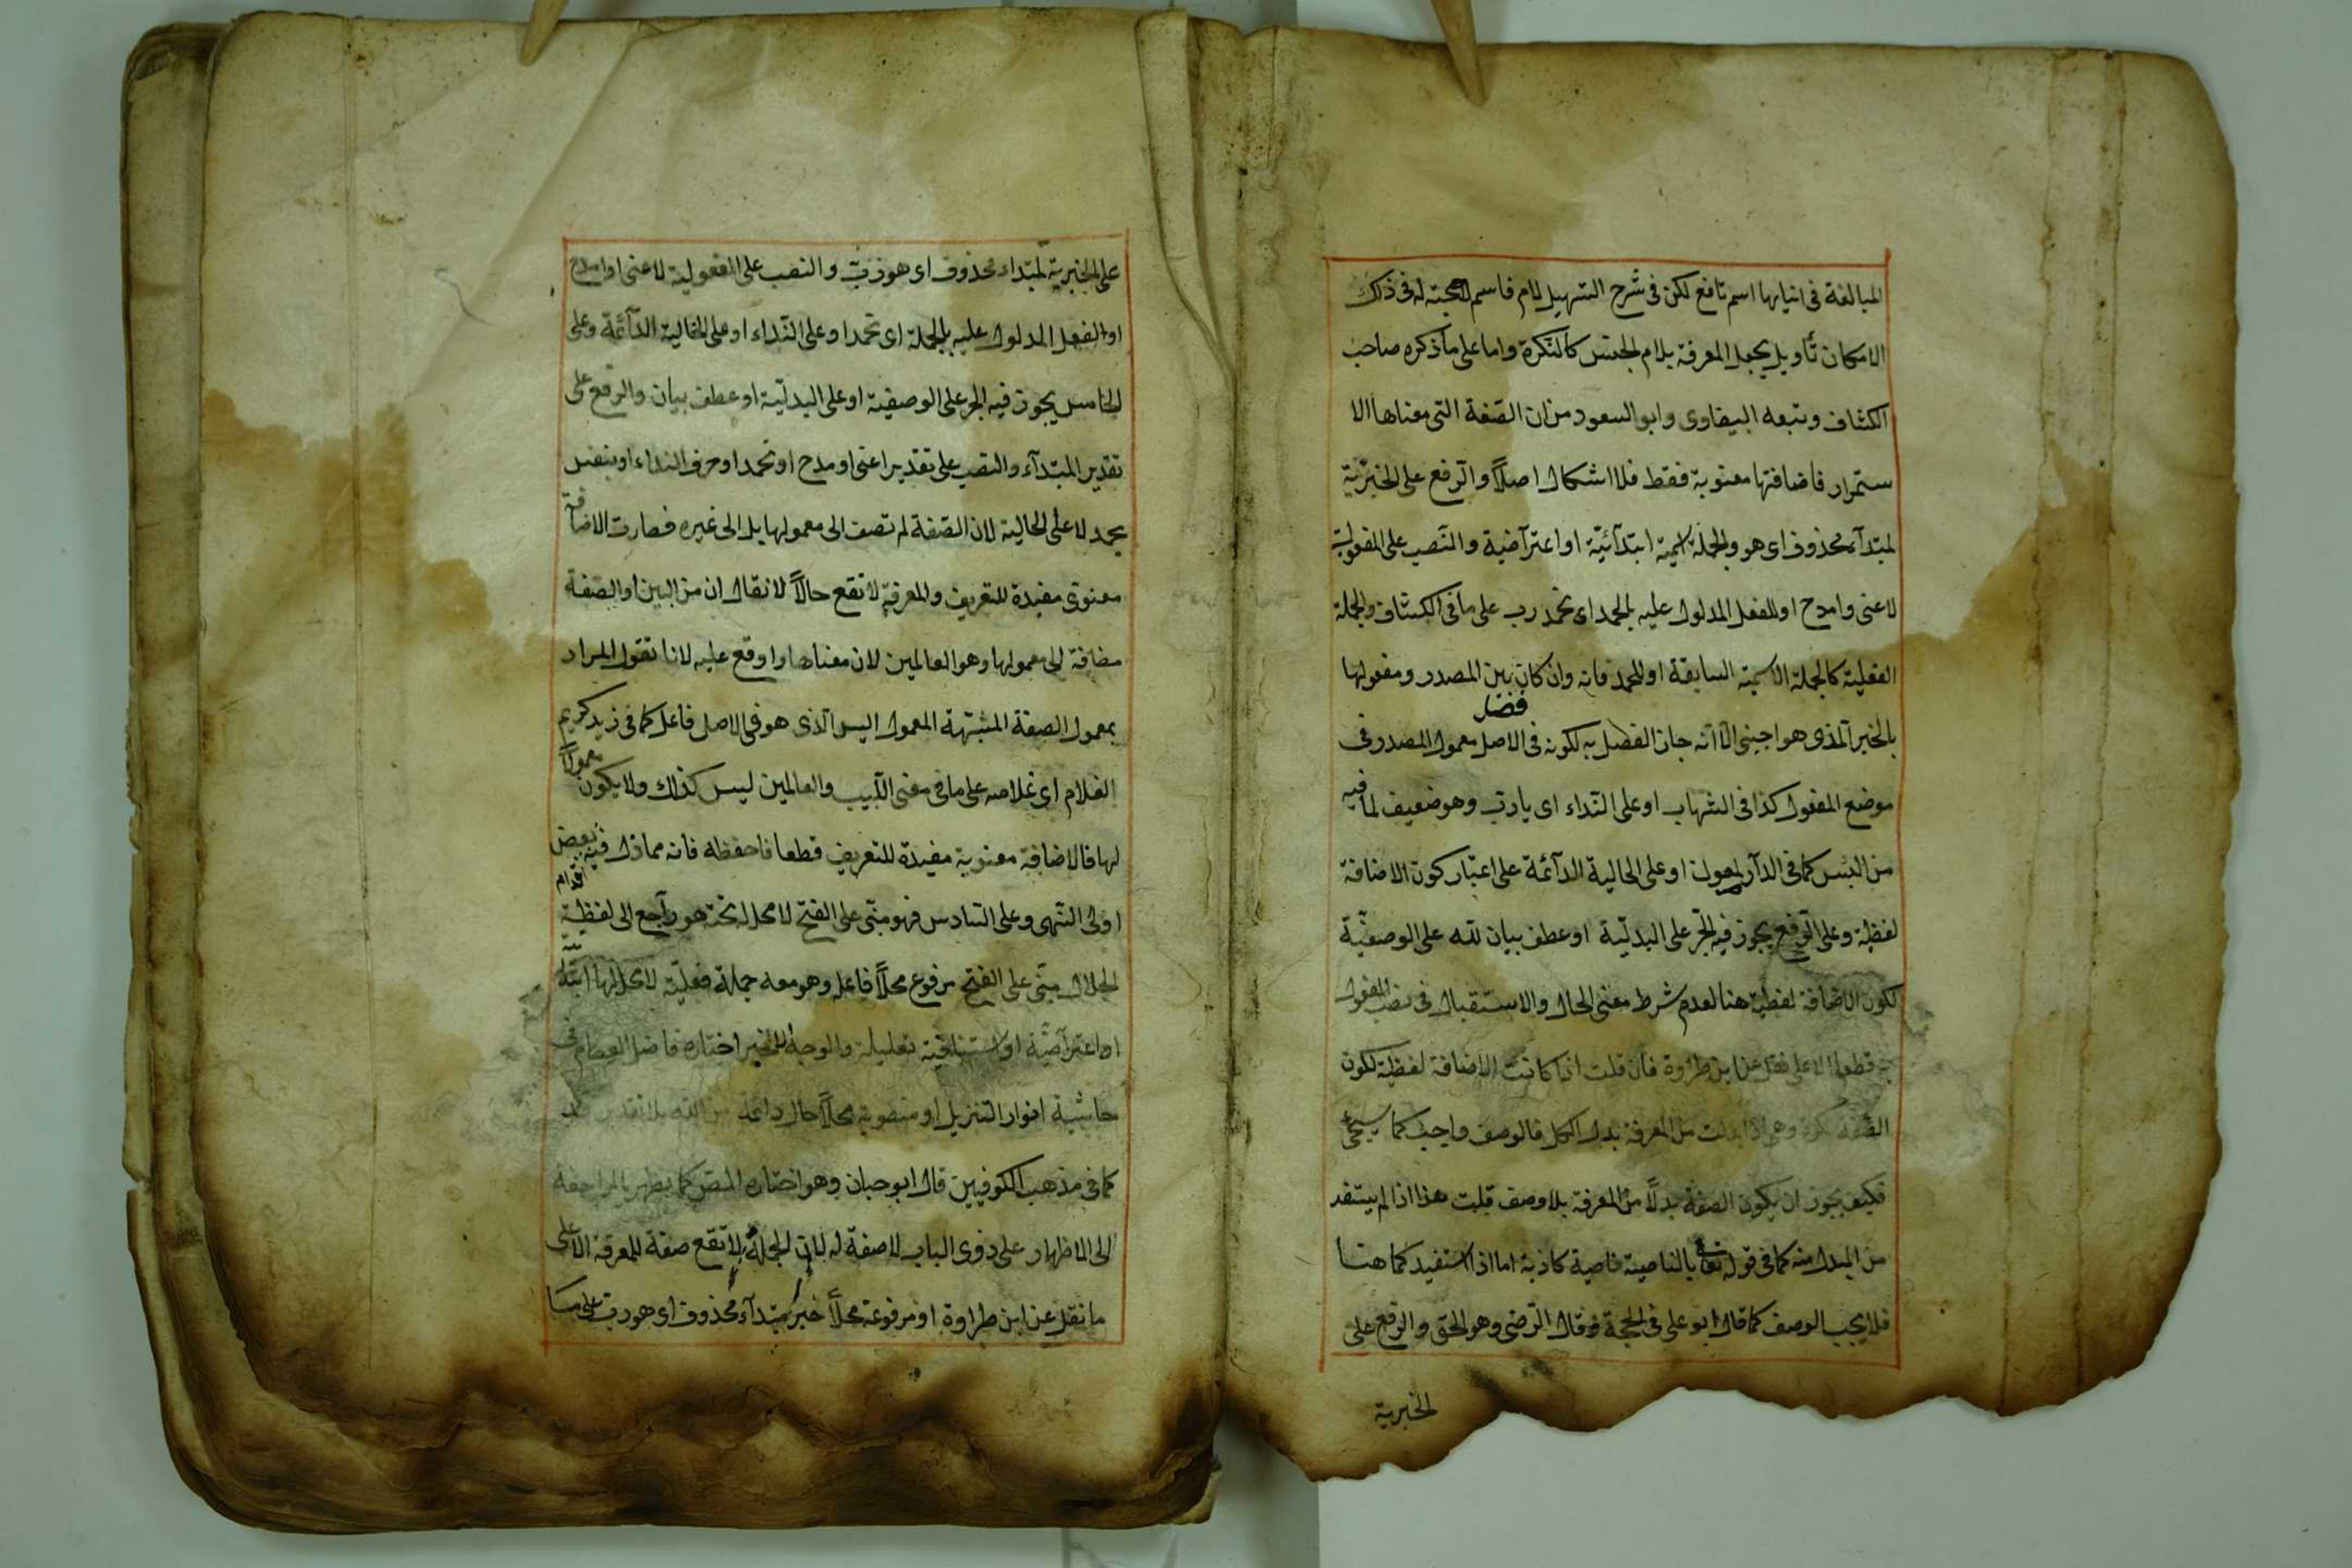 المبالغة فى اتيانها اسم تافع لكن فى شرح التسهيل لام فاسم لاحجته له فى ذلك
الامكان تأويل يجعل المعرفة بلام الجنس كالنكرة واما على ماذكره صاحب
الكشاف وتبعه البيضاوى وابو السعود من ان الصفة التى معناها الا
ستمرار فاضافتها معنوية فقط فلا اشكال اصلاً والرفع على الخبريّة
لمبتدآء محذوف اى هو والجملة اسمية ابتدآئيّة او اعترآضية والنصب على المفعولية
لاعنى وامدح او للفعل المدلول عليه بالحمد اى نحمد رب على ما فى الكشاف والجملة
الفعلية كالجملة الاسمية السابقة او للحمد فانه وان كان بين المصدر ومفعولها
فضل
بالخبر الّذى هو اجنبى الّا انّه جاز الفصل به لكونه فى الاصل معمول المصدر فى
موضع المفعول كذا فى الشهاب او على النّداء اى يا ربّ وهو ضعيف لما فيه
من اللبس كما فى الدآر لمعول او على الحالية الدآئمة على اعتبار كون الاضافة
لفظية وعلى الرّفع يجوز فيه الجرّ على البدليّة او عطف بيان لله على الوصفيّة
لكون الاضافة لفظية هنا لعدم شرط معنى الحال والاستقبال فى نصب المفعول
به قطعا الا على نقل عن ابن طراوة فان قلت اذا كانت الاضافة لفظية لكون
الصفة نكرة وهى اذا بدلت من المعرفة بدل الكل فالوصف واجب كما سيجئ
فكيف يجوز ان يكون الصفة بدلاً من المعرفة بلا وصف قلت هذا اذا لم يستفد
من المبدل منه كما فى قوله تعا بالناصية ناصية كاذبة اما اذا استفيد كما هنا
فلا يجب الوصف كما قال ابو على فى الحجة وقال الرّضى وهو الحق والرفع على
الخبرية
على الخبرية لمبتداء محذوف اى هو ربّ والنصب على المفعولية لاعنى او امدح
او الفعل المدلول عليه بالجملة اى نحمد او على النّداء او على الحالية الدآئمة وعلى
الخامس يجوز فيه الجر على الوصفية او على البدليّة او عطف بيان والرفع على
تقدير المبتدآء والنصب على تقدير اعنى او مدح او نحمد او حرف النداء او بنفس
بحمد لا على الحالية لان الصّفة لم تضف الى معمولها بل الى غيره فصارت الاضافة
معنوى مفيدة للتعريف والمعرفة لا تقع حالاً لا نقال ان من البين او الصّفة
مضافة الى معمولها وهو العالمين لان معناها واوقع عليه لانا نقول المراد
بمعمول الصفة المشبّهة المعمول اليس الّذى هو فى الاصل فاعل كما فى زيد كريم
معمولاً
الغلام اى غلامه على ما فى مغنى اللّبيب والعالمين ليس كذلك ولا يكون
لها فالاضافة معنوية مفيدة للتعريف قطعا فاحفظه فانه مما زل فيه بعض
اقدام
اولى النّهى وعلى السّادس فهو مبنّى على الفتح لا محل له تحته هو راجع الى لفظية
الجلال مبنّى على الفتح مرفوع محلاً فاعله وهو معه جملة فعليّة لا محل لها ابتدا
ئيّة
او اعترآضيّة او استينافية تعليلة والوجه الاخير اختاره فاضل العصام فى
حاشية انوار التنزيل او منصوبة محلاً حال دائمة من الله بلا تقدير قد
كما فى مذهب الكوفيين قال ابو حيان وهو اختاره المص كما يظهر بالمراجعة
الى الاظهار على ذوى الباب لا صفة له لان الجملة لا تقع صفة للمعرفة الا على
ما نقل عن ابن طراوة او مرفوعة محلاً خبر مبتدآء محذوف اى هو رب على ما